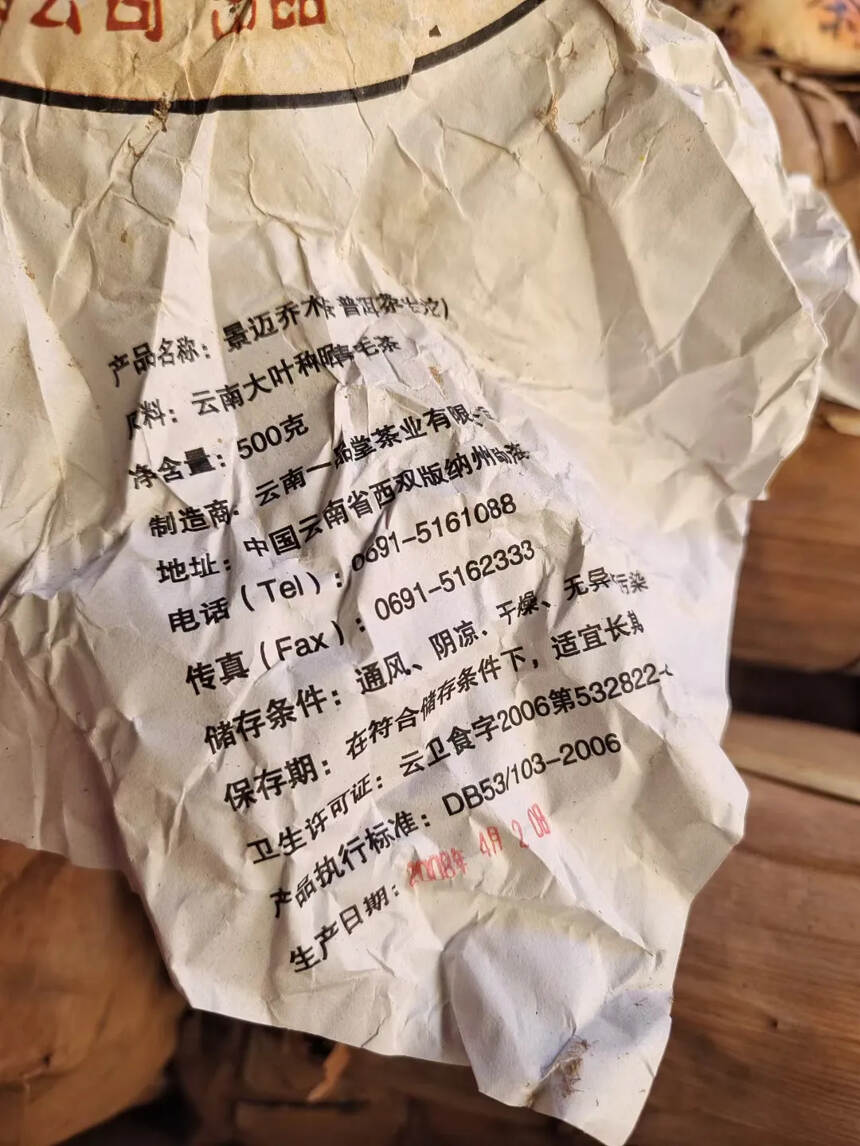 公司 出品
产品名称：景迈乔木茶(普洱茶生沱)
原料：云南大叶种晒青毛茶
净含量：500克
制造商：云南一品堂茶业有限
地址：中国云南省西双版纳州勐海
电话（Tel）：0691-5161088
传真（Fax）：0691-5162333
储存条件：通风、阴凉、干燥、无异 污染
保存期：在符合储存条件下，适宜长期
卫生许可证：云卫食字2006第532822-
产品执行标准：DB53/103-2006
生产日期：2008年 4月 2 08